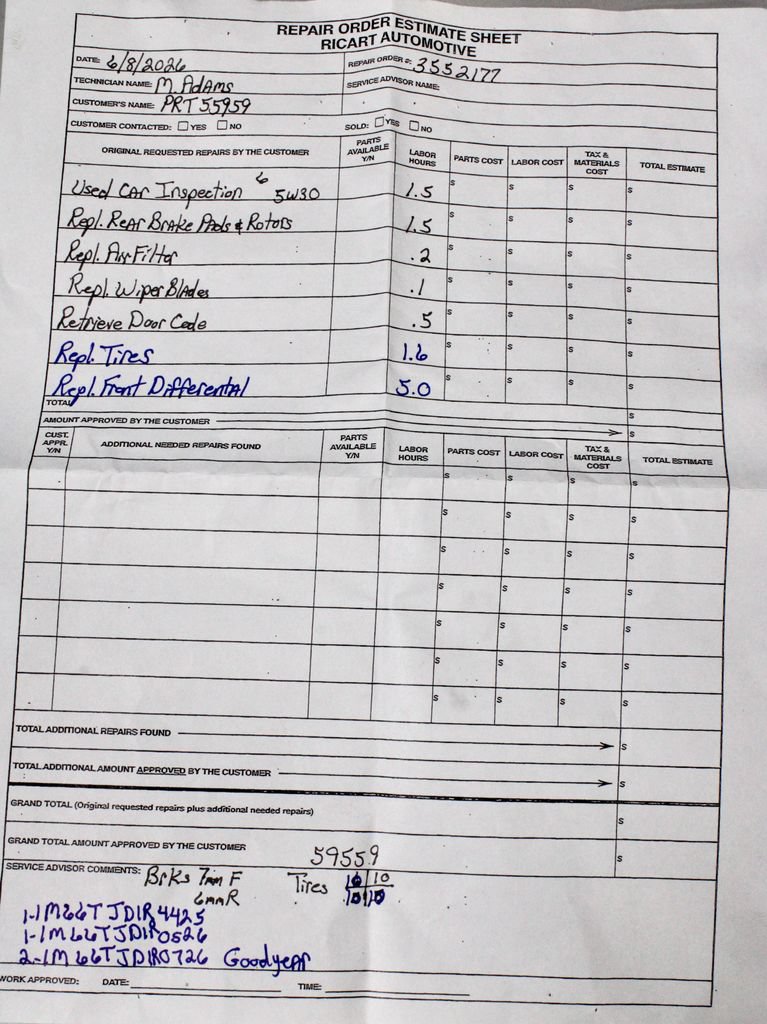 REPAIR ORDER ESTIMATE SHEET
RICART AUTOMOTIVE
DATE: 6/8/2026
REPAIR ORDER #: 3552177
TECHNICIAN NAME: M. Adams
SERVICE ADVISOR NAME:
CUSTOMER'S NAME: PRT 55959
CUSTOMER CONTACTED: ☐ YES ☐ NO
SOLD: ☐ YES ☐ NO
ORIGINAL REQUESTED REPAIRS BY THE CUSTOMER PARTS AVAILABLE Y/N LABOR HOURS PARTS COST LABOR COST TAX & MATERIALS COST TOTAL ESTIMATE
Used Car Inspection 6 5W30 1.5 $ $ $ $
Repl. Rear Brake Pads & Rotors 1.5 $ $ $ $
Repl. Air Filter .2 $ $ $ $
Repl. Wiper Blades .1 $ $ $ $
Retrieve Door Code .5 $ $ $ $
Repl. Tires 1.6 $ $ $ $
Repl. Front Differential 5.0 $ $ $ $
TOTAL $
AMOUNT APPROVED BY THE CUSTOMER $
CUST. APPR. Y/N ADDITIONAL NEEDED REPAIRS FOUND PARTS AVAILABLE Y/N LABOR HOURS PARTS COST LABOR COST TAX & MATERIALS COST TOTAL ESTIMATE
$ $ $ $
$ $ $ $
$ $ $ $
$ $ $ $
$ $ $ $
$ $ $ $
$ $ $ $
TOTAL ADDITIONAL REPAIRS FOUND $
TOTAL ADDITIONAL AMOUNT APPROVED BY THE CUSTOMER $
GRAND TOTAL (Original requested repairs plus additional needed repairs) $
GRAND TOTAL AMOUNT APPROVED BY THE CUSTOMER $
59559
SERVICE ADVISOR COMMENTS: Brks 7mm F Tires 10 10
6mm R 10 10
1-1M66TJDIR4425
1-1M66TJDIR0526
2-1M66TJDIR0726 Goodyear
WORK APPROVED: DATE: TIME: